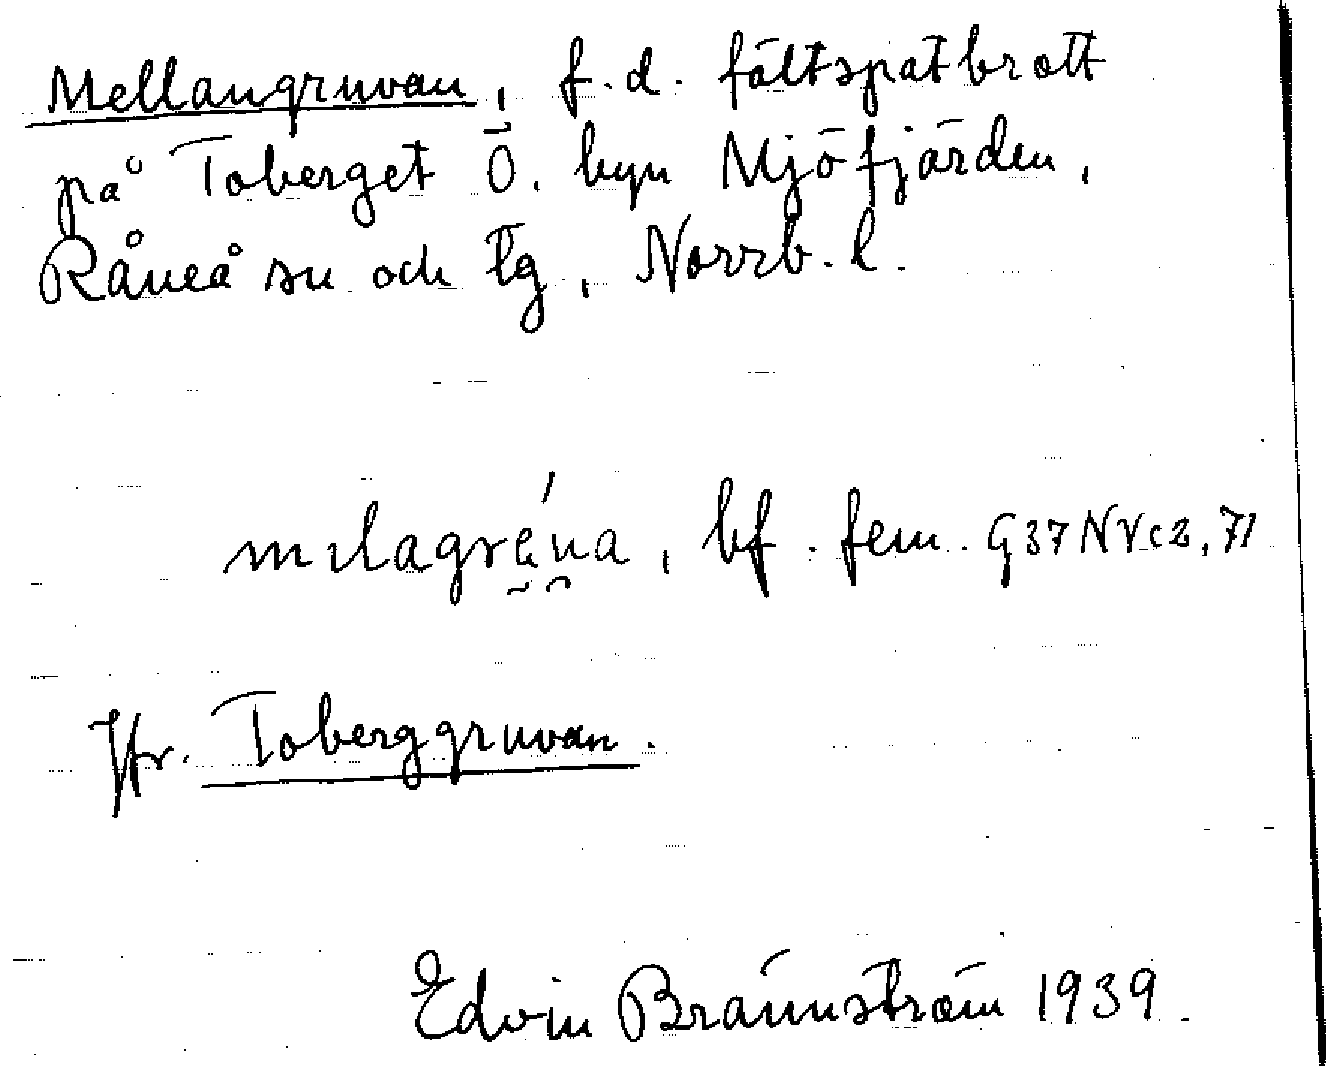 Mellangruvan, f.d. fältspatbrott
på Toberget Ö. byn Mjöfjärden,
Råneå sn och tg, Norrb. l.
mιlagrė́na, bf. fem. G37NVc2,71
Jfr. Toberggruvan.
Edvin Brännström 1939.